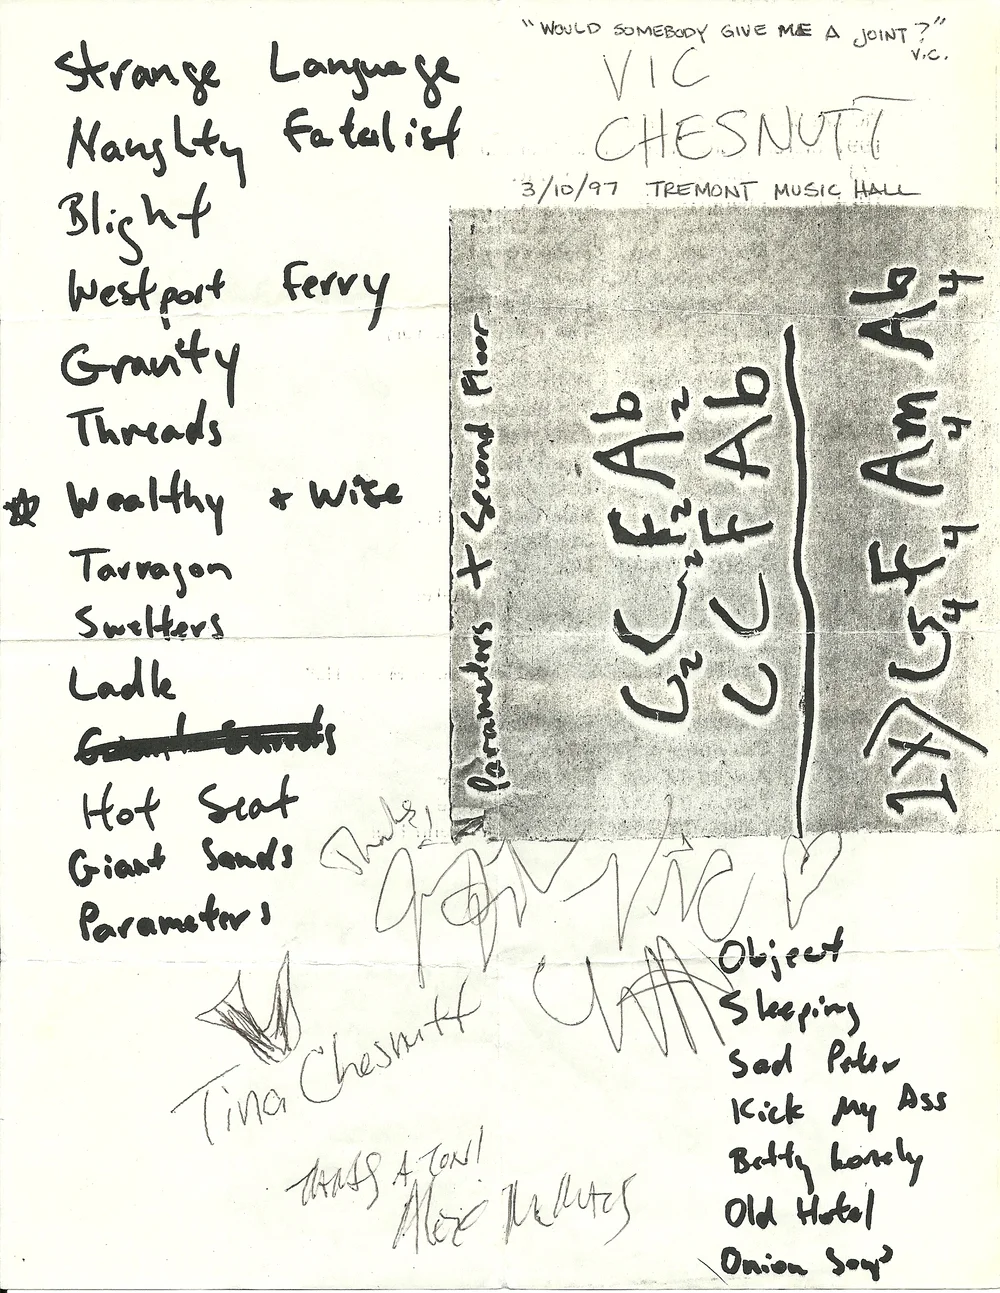 "WOULD SOMEBODY GIVE ME A JOINT?"
V.C.
VIC
CHESNUTT
3/10/97 TREMONT MUSIC HALL
Strange Language
Naughty Fatalist
Blight
Westport Ferry
Gravity
Threads
Wealthy + Wise
Tarragon
Swelters
Ladle
Giant Sands
Hot Seat
Giant Sands
Parameters
Parameters + Second Floor
C2 C2 F2 Ab2
C C F Ab
1X) G4 F4 Am4 Ab4
Thanks!
Vic
Tina Chesnutt
THANKS A TON!
Alex McManus
Object
Sleeping
Sad Peter
Kick My Ass
Betty Lonely
Old Hotel
Onion Soup